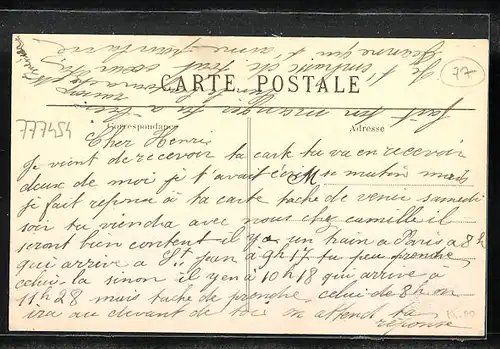 CARTE POSTALE
Correspondance
Adresse
77
777454
Cher Henri
Je vient de recevoir ta cart tu va en recevoir
deux de moi je t'avait écrit se matin mais
je fait reponse à ta carte tache de venir samedi
soir tu viendra avec nous chez camille il
seront bien content il y a un train a Paris a 8h
qui arrive a St jean a 9h17 tu peu prendre
celui la sinon il yen à 10h18 qui arrive a
11h28 mais tache de prendre celui de 8h on
ira au devant de toi on attend ta
réponse
fait ton manger tu a
Je t'embrasse de tout cœur
Jeanne qui t'aime